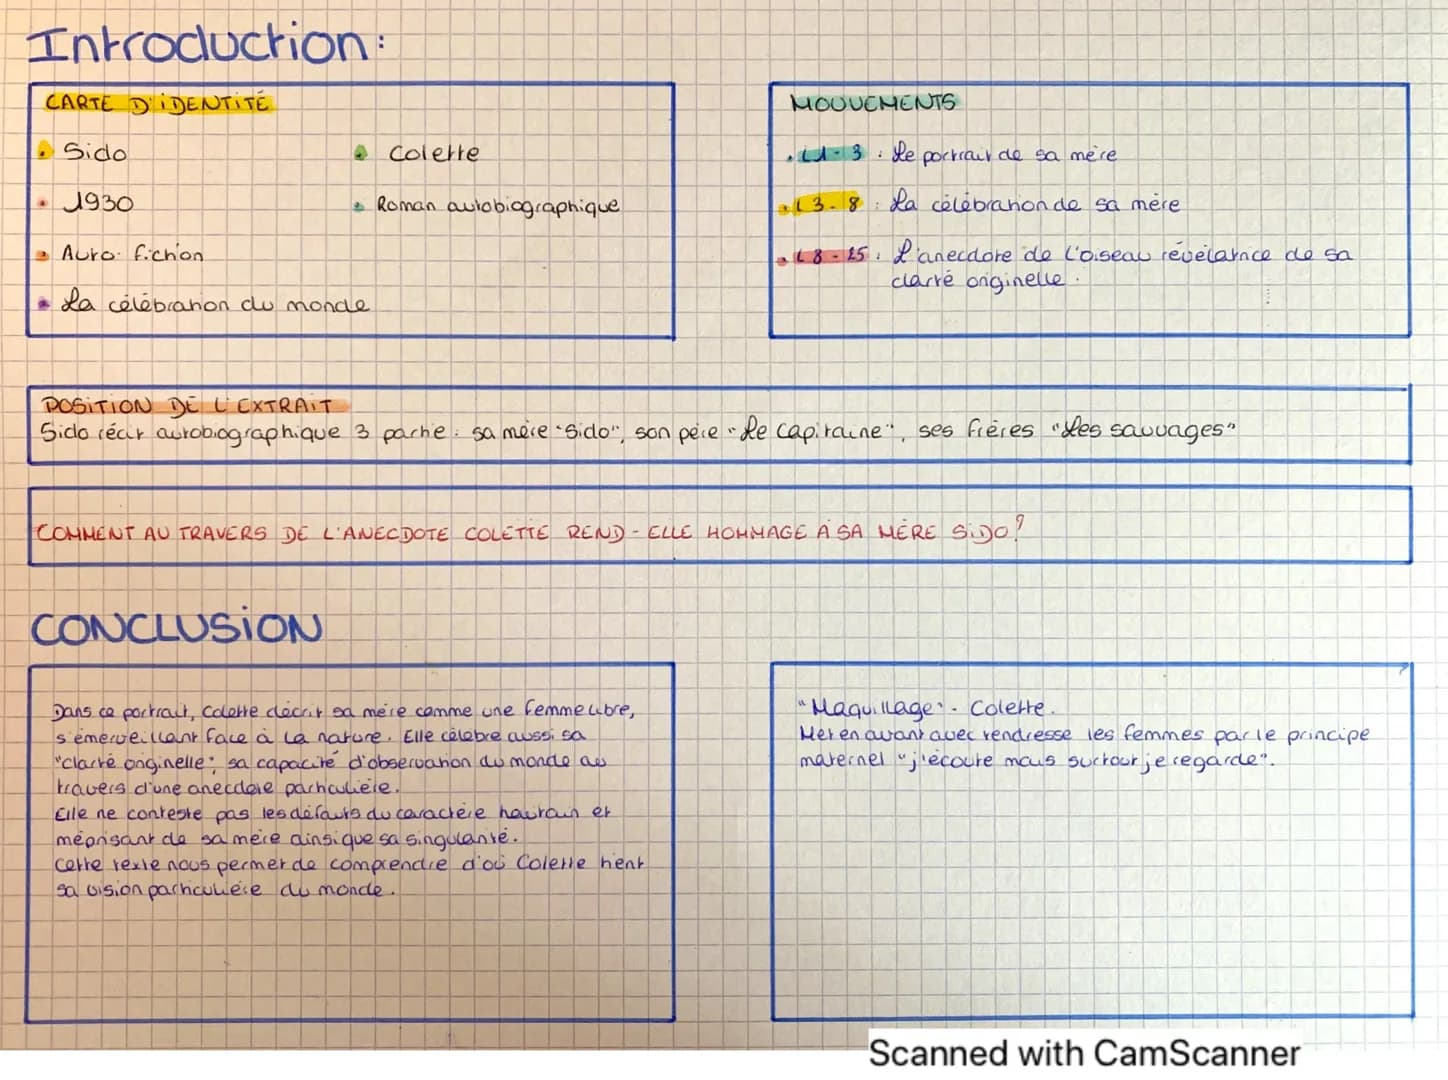 Introduction:
CARTE D'IDENTITÉ
Sido
Colette
1930
Roman autobiographique
Auto-fiction
La célébration du monde
MOUVEMENTS
L1-3 : Le portrait de sa mère
L3-8 : La célébration de sa mère
L8-25 : L'anecdote de l'oiseau révélatrice de sa
clarté originelle.
POSITION DE L'EXTRAIT
Sido récit autobiographique 3 partie : sa mère "Sido", son père "Le Capitaine", ses frères "Les sauvages"
COMMENT AU TRAVERS DE L'ANECDOTE COLETTE REND-ELLE HOMMAGE À SA MÈRE SIDO?
CONCLUSION
Dans ce portrait, Colette décrit sa mère comme une femme libre,
s'émerveillant face à la nature. Elle célèbre aussi sa
"clarté originelle", sa capacité d'observation du monde au
travers d'une anecdote particulière.
Elle ne conteste pas les défauts du caractère hautain et
méprisant de sa mère ainsi que sa singularité.
Cette texte nous permet de comprendre d'où Colette tient
sa vision particulière du monde.
"Maquillage" - Colette.
Met en avant avec tendresse les femmes par le principe
maternel "j'écoute mais surtout je regarde".
Scanned with CamScanner